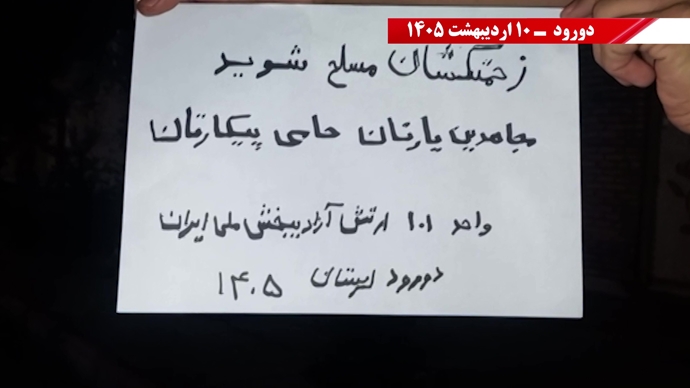 دورود ــ ۱۰ اردیبهشت ۱۴۰۵
زحمتکشان مسلح شوید
مجاهدین یارتان حامی پیکارتان
واحد ۱۰۱ ارتش آزادیبخش ملی ایران
دورود لرستان ۱۴۰۵